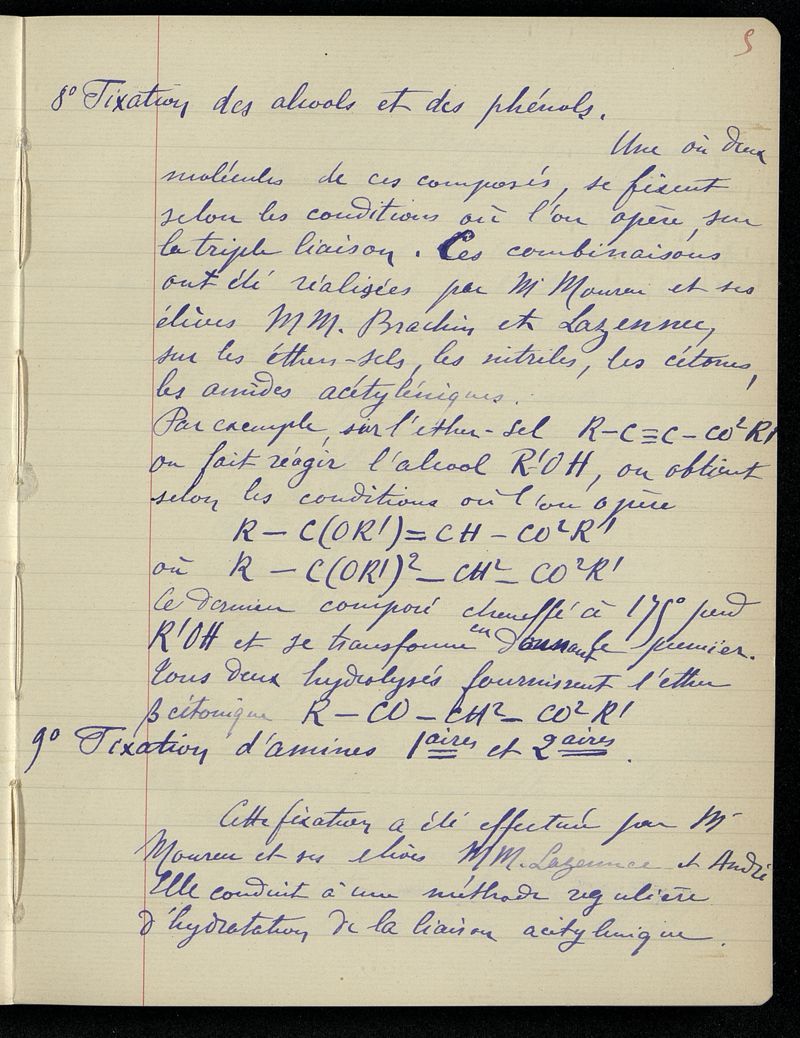 5
8° Fixation des alcools et des phénols.
Une où deux
molécules de ces composés, se fixent
selon les conditions où l'on opère, sur
la triple liaison. Ces combinaisons
ont été réalisées par Mr Moureu et ses
élèves MM. Brachin et Lazennec,
sur les éthers-sels, les nitriles, les cétones,
les amides acétyléniques.
Par exemple, sur l'ether-sel R-C≡C-CO²R'
on fait réagir l'alcool R'OH, on obtient
selon les conditions où l'on opère
R - C(OR')=CH - CO²R'
où R - C(OR')²-CH²- CO²R'
Ce dernier composé chauffé à 175° perd
R'OH et se transforme en donnant le premier.
Tous deux hydrolysés fournissent l'ether
β cétonique R - CO - CH²- CO²R'
9° Fixation d'amines 1aires et 2aires.
Cette fixation a été effectuée par Mr
Moureu et ses élèves MM. Lazennec et André
Elle conduit à une méthode regulière
d'hydratation de la liaison acétylenique.